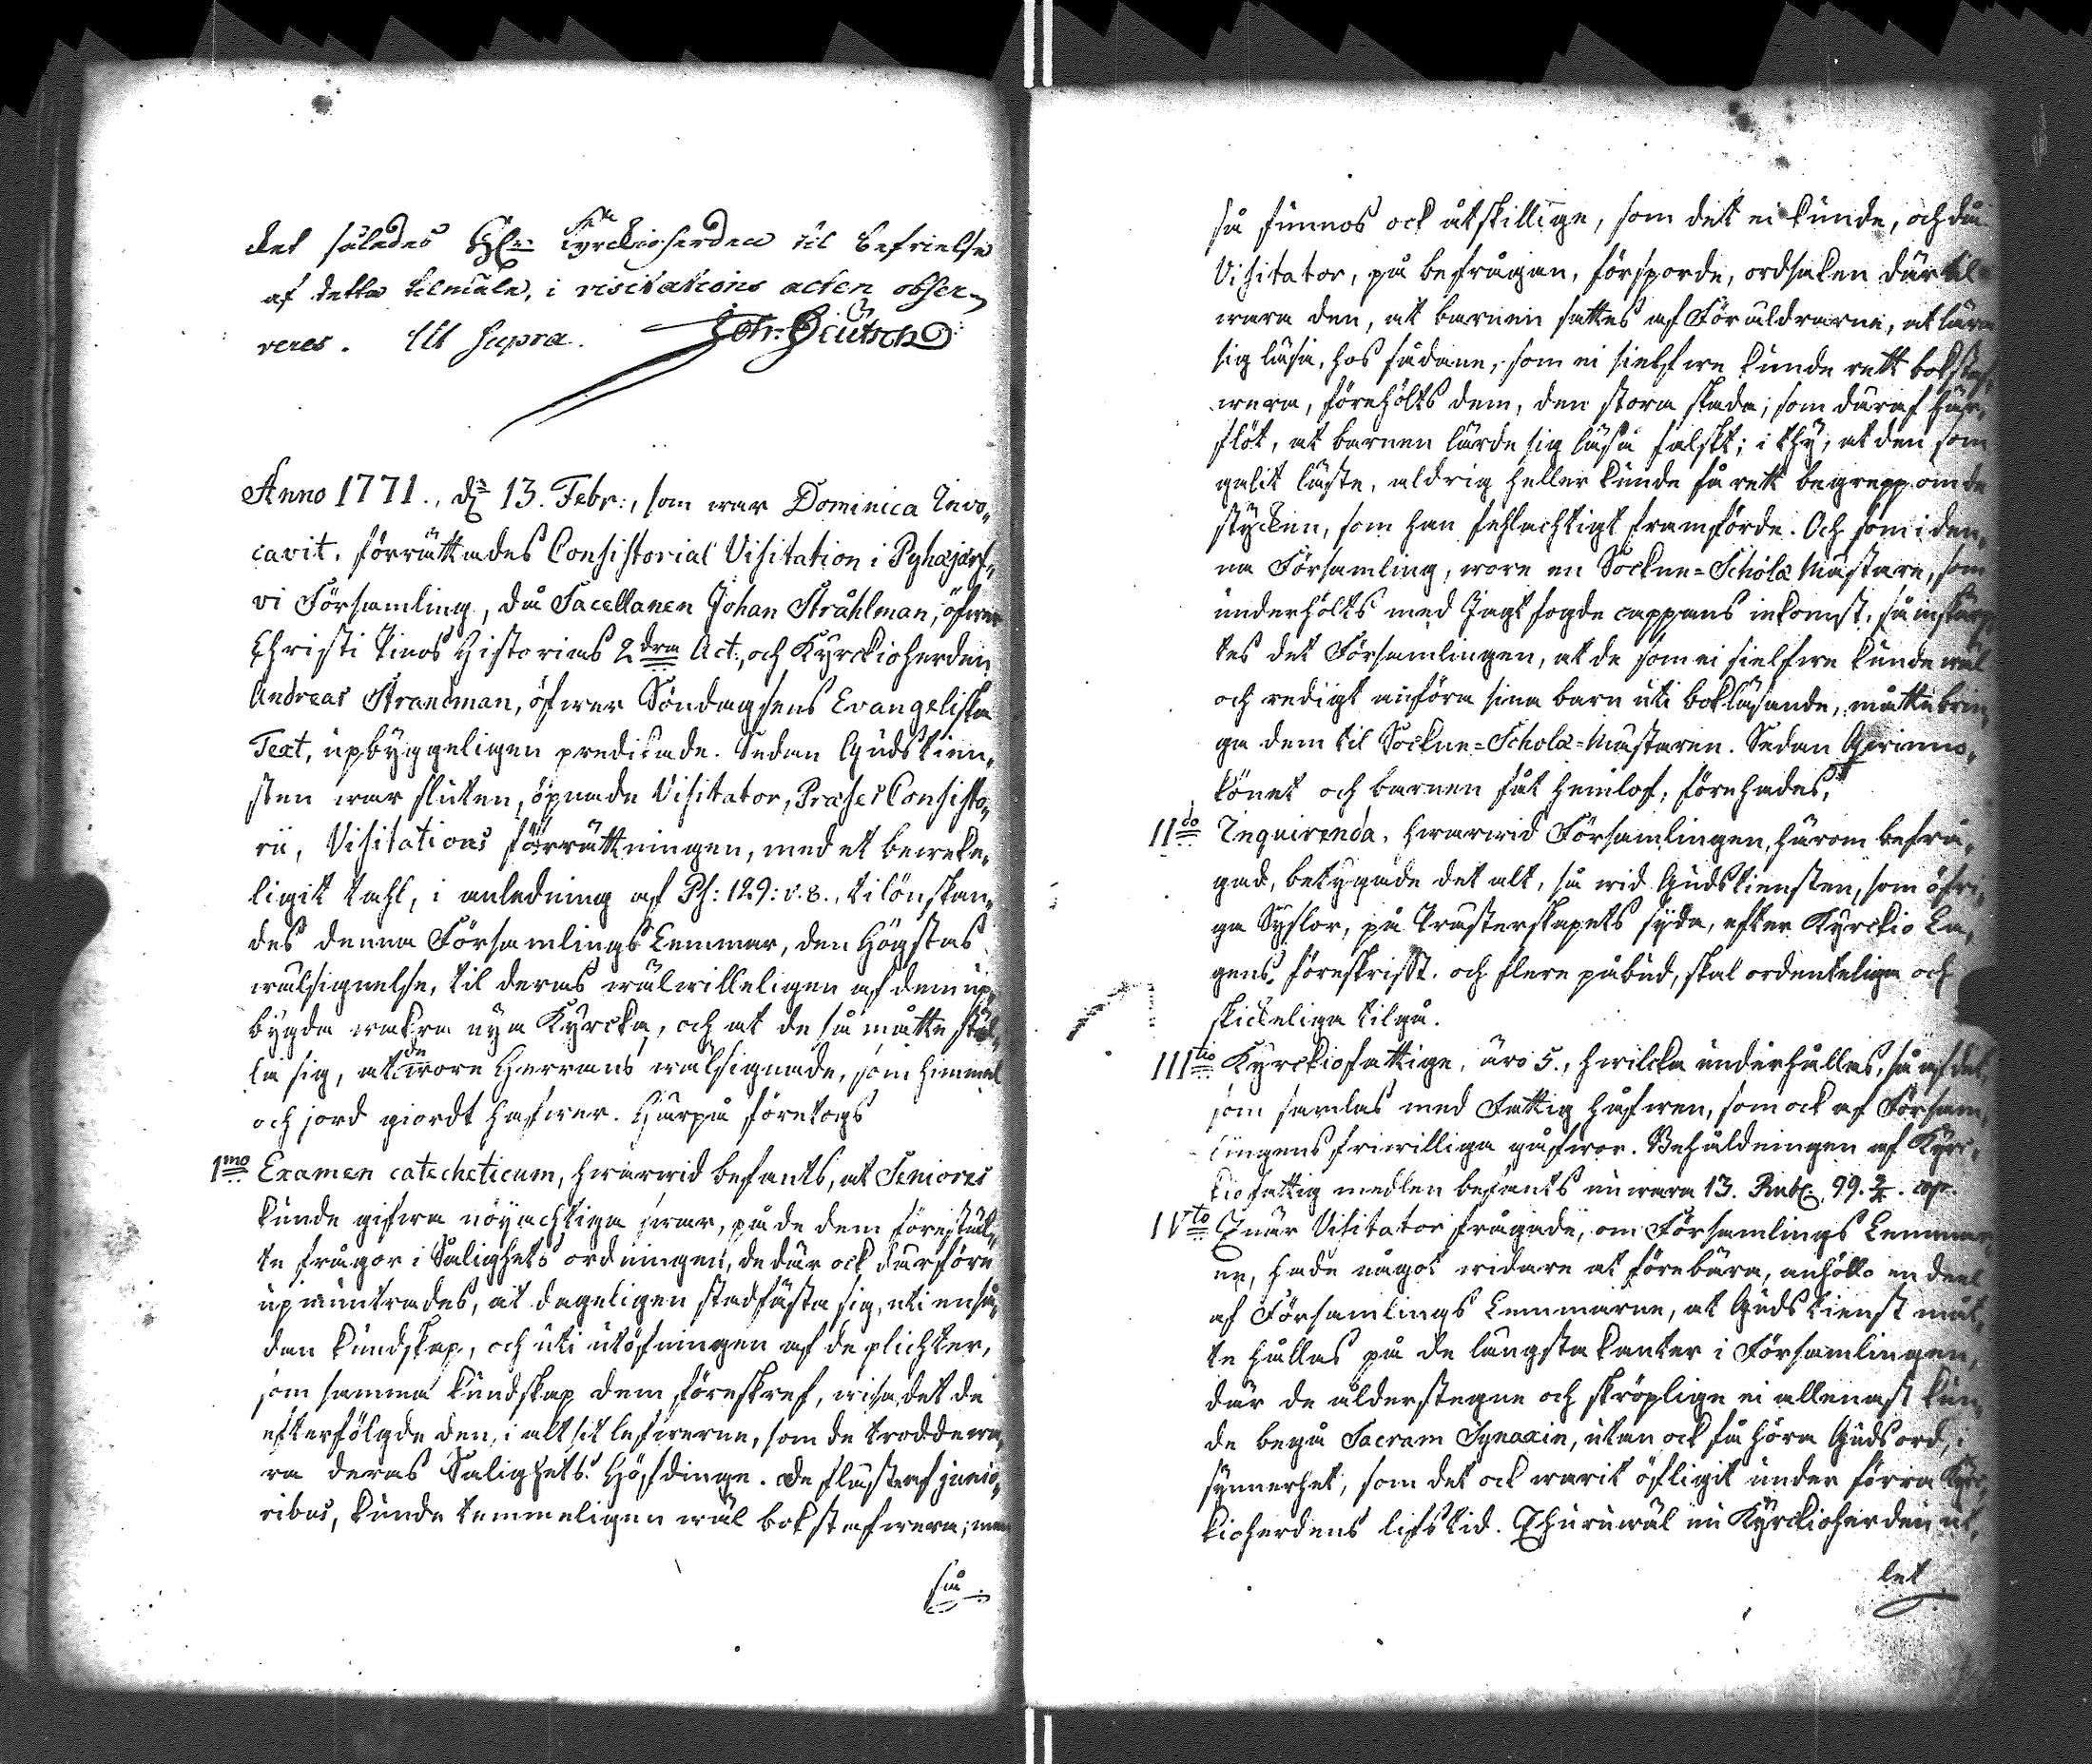 det således H:r Kyrckioherden til befrielse
af detta tilmäle, i visitations acten obser-
veres. Ut supra. Joh: Deutsch
Anno 1771., d: 13. Febr:, som war Dominica Invo-
cavit, förrättades Consistorial Visitation i Pyhäjärf-
vi Församling, då Sacellanen Johan Stråhlman, öfwer
Christi Pinos Historias 2dra Act., och Kyrckioherden
Andreas Strandman, öfwer Söndagsens Evangeliska
Text, upbyggeligen predikade. Sedan Gudstien-
sten war sluten, öpnade Visitator, Præses Consisto-
rii, Visitations förrättningen, med et beweke-
ligit tahl, i anledning af Ps: 129: v. 8., tilönskan-
des denna Församlings Lemmar, den Högstas
wälsignelse, til deras wälwilleligen af dem up-
bygda wakra nya Kyrcka, och at de så måtte stäl-
la sig, at de wore Herrans wälsignade, som himmel
och jord giordt hafwer. Härpå företogs
1mo Examen catecheticum, hwarwid befants, at Seniores
kunde gifwa nöyachtiga swar, på de dem förestäl-
te frågor i Salighets ordningen, de där ock därföre
upmuntrades, at dageligen stadfästa sig, uti en så-
dan kundskap, och uti utöfningen af de plichter,
som samma kundskap dem föreskref, wisa, det de
efterfölgde den, i alt sit lefwerne, som de trodde wa-
ra deras Salighets Höfdinge. De fläste af junio-
ribus, kunde temmeligen wäl bokstafwera; men
så
så funnos ock åtskillige, som det ei kunde, och då
Visitator, på befrågan, försporde, ordsaken därtil
wara den, at barnen sattes af Föräldrarne, at lära
sig läsa, hos sådane, som ei sielfwe kunde rett bokstaf-
wera, förehölts dem, den stora skada, som däraf här-
flöt, at barnen lärde sig läsa falskt; i thy, at den som
galit läste, aldrig heller kunde få rett begrepp om de
stycken, som han fehlachtigt framförde. Och som i den-
na Församling, wore en Sockne-Scholæ Mästare, som
underhölts med Jagt fogde cappans inkomst, så inskärp-
tes det Församlingen, at de som ei sielfwe kunde wäl
och redigt anföra sina barn uti bokläsande, måtte brin-
ga dem til Sockne-Scholæ-Mästaren. Sedan Qwinno-
könet och barnen fåt hemlof, förehades,
IIdo Inquirenda, hwarwid Församlingen, härom befrå-
gad, betygade det alt, så wid Gudstiensten, som öfri-
ga Syslor, på Prästerskapets syda, efter Kyrckio La-
gens föreskrifft, och flere påbud, skal ordenteliga och
skickeliga tilgå.
IIItio Kyrckiofattige, äro 5., hwilcka underhållas, så af det,
som samlas med Fattig håfwen, som ock af Försam-
lingens friwilliga gåfwor. Behåldningen af Kyrc-
kiofattig medlen befants nu wara 13. Rub. 99. 3/4. cop.
IVto Enär Visitator frågade, om Församlings Lemmar-
ne, hade något widare at förebära, anhöllo en deel
af Församlings Lemmarne, at Gudstienst måt-
te hållas på de längsta kanter i Församlingen,
där de ålderstegne och skröplige ei allenast kun-
de begå Sacram Synaxin, utan ock få höra Guds ord, i
synnerhet, som det ock warit öfligit under förra Kyrc-
kioherdens lifstid. Ehuruwäl nu Kyrckioherden ut-
let